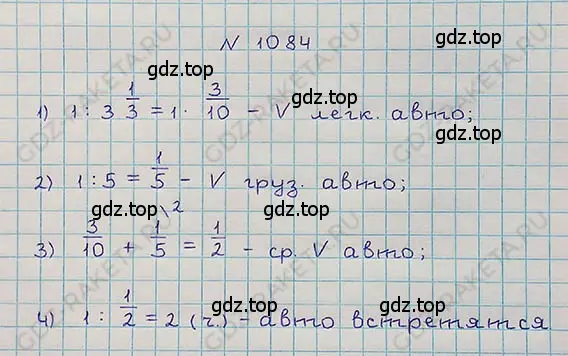 N 1084
gdz.top
gdz.top gdz.top
1) 1 : 3 1/3 = 1 · 3/10 - V легк. авто;
gdz.top
2) 1 : 5 = 1/5 - V груз. авто;
gdz.top
3) 3/10 + 1/5 \2 = 1/2 - ср. V авто;
gdz.top
gdz.top gdz.top
4) 1 : 1/2 = 2 (ч.) - авто встретятся
GDZ-RAKETA.RU